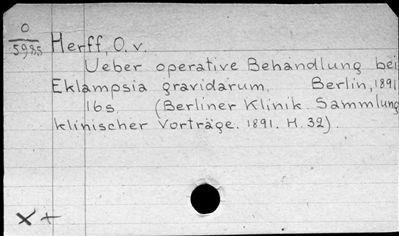 O
5985
Herff, O. v.
Ueber operative Behandlung bei
Eklampsia gravidarum. Berlin, 1891
16s (Berliner Klinik. Sammlung
klinischer Vorträge. 1891. H. 32).
X +